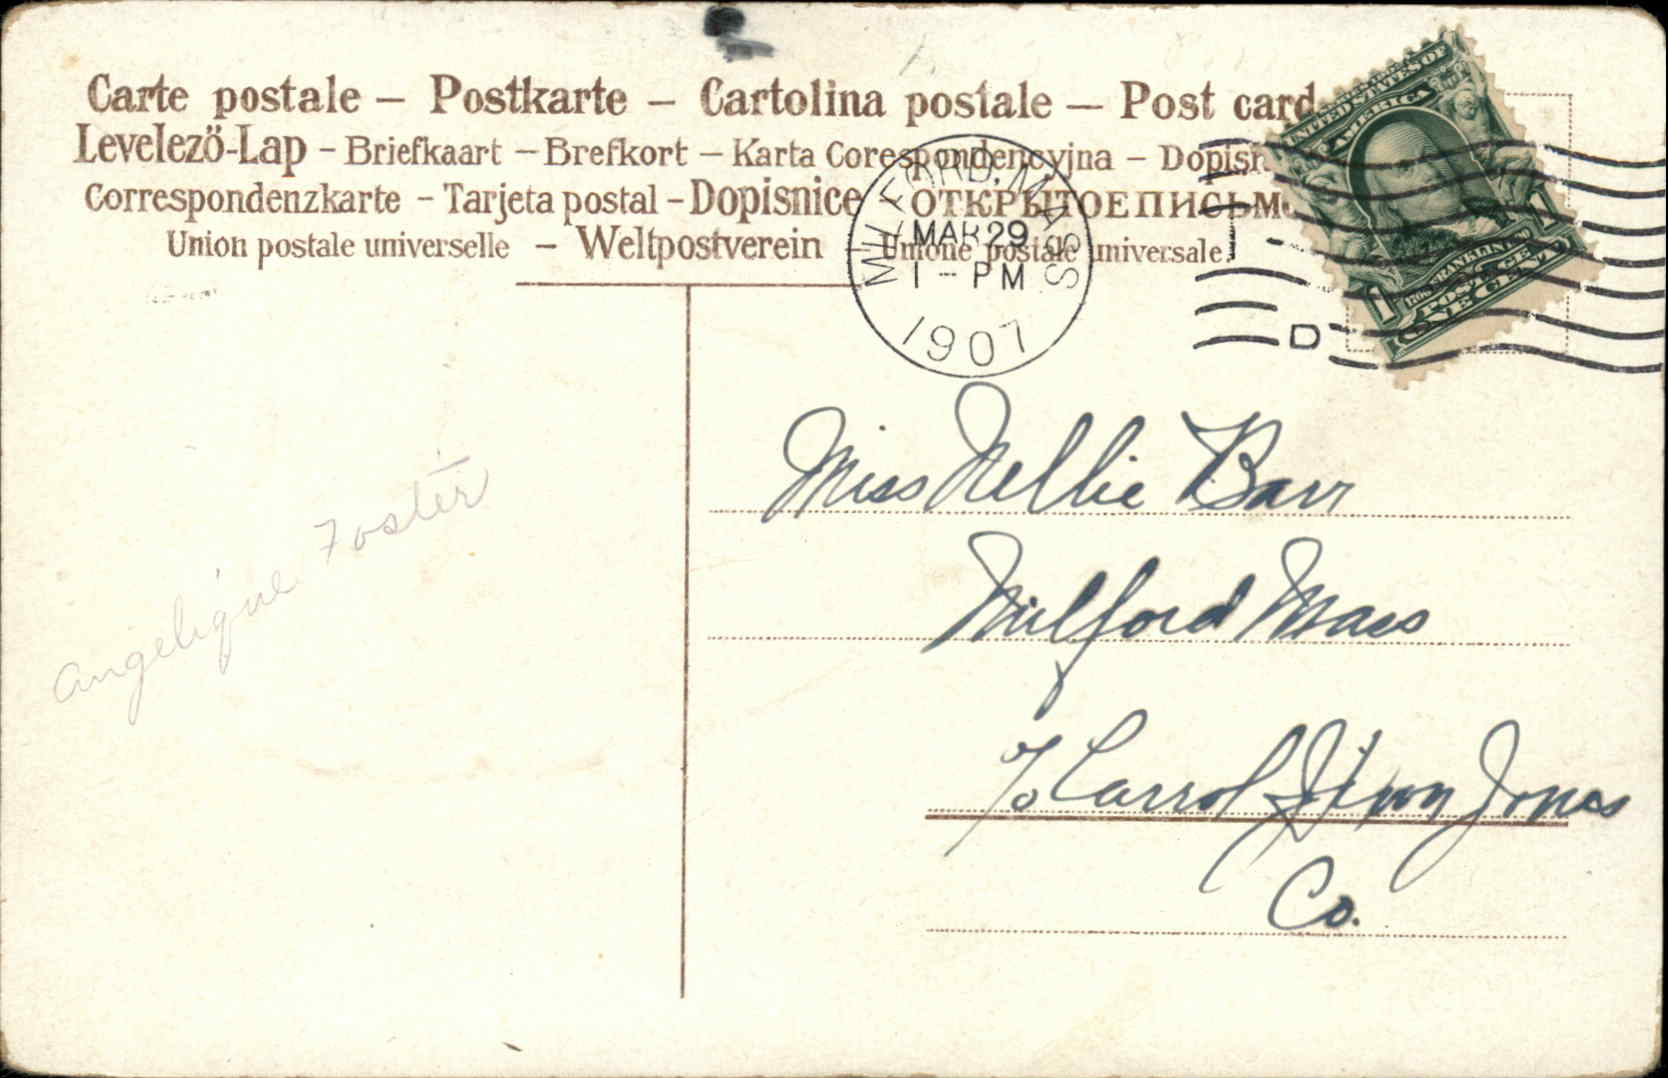 Carte postale – Postkarte – Cartolina postale – Post card
Levelező-Lap – Briefkaart – Brefkort – Karta Corespondencyjna –
Correspondenzkarte – Tarjeta postal – Dopisnice ОТКРЫТОЕ ПИСЬМО
Union postale universelle – Weltpostverein Unione postale universale.
MILFORD, MASS.
MAR 29
1 - PM
1907
D
UNITED STATES OF
AMERICA
1 1
FRANKLIN
POSTAGE
ONE CENT
Miss Nellie Barr
Milford Mass
℅ Carrol Jones
Co.
Angelique Foster